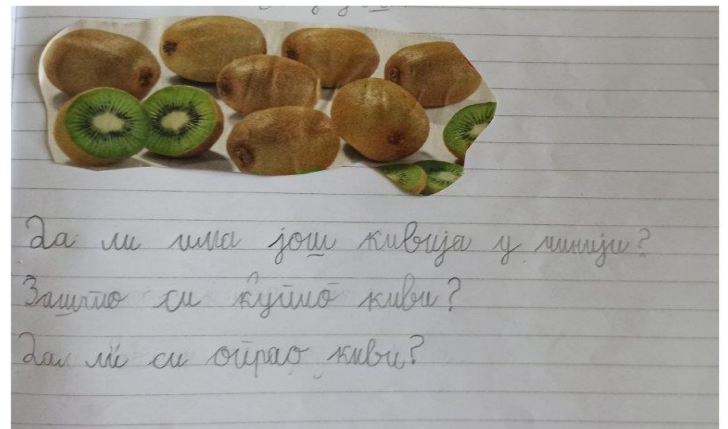 Да ли има још кивија у чинији?
Зашто си купио киви?
Да ли си опрао киви?